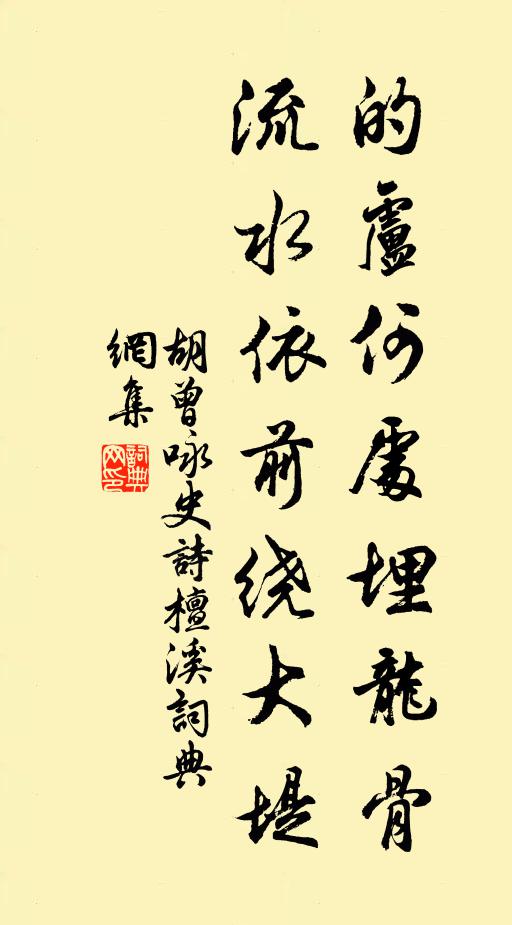 的盧何處埋龍骨
流水依前繞大堤
胡曾咏史詩檀溪詞典
網集
詞典網印